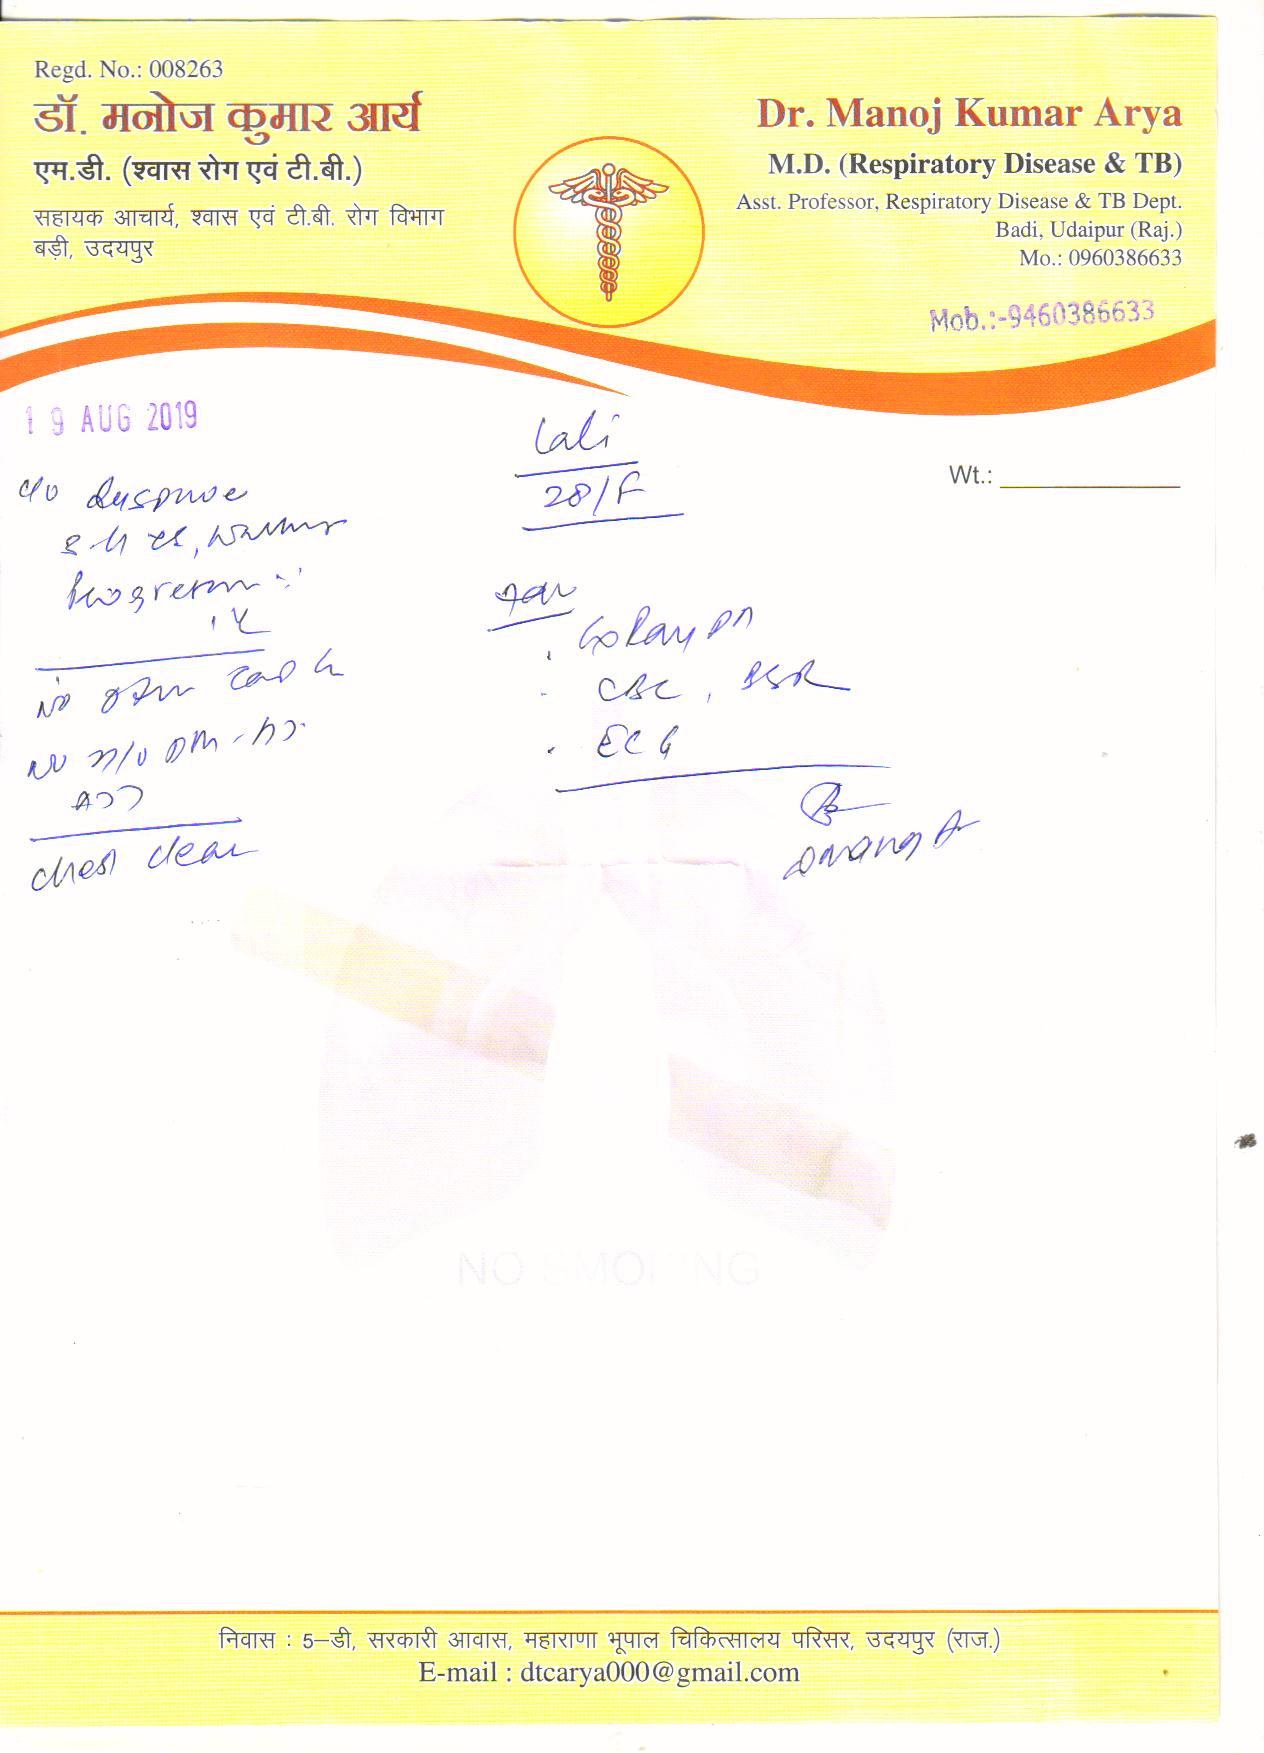 Regd. No.: 008263
डॉ. मनोज कुमार आर्य
एम.डी. (श्वास रोग एवं टी.बी.)
सहायक आचार्य, श्वास एवं टी.बी. रोग विभाग
बड़ी, उदयपुर
Dr. Manoj Kumar Arya
M.D. (Respiratory Disease & TB)
Asst. Professor, Respiratory Disease & TB Dept.
Badi, Udaipur (Raj.)
Mo.: 0960386633
Mob.:-9460386633
19 AUG 2019
Lali
28/F
Wt.:
c/o
No
No H/O DM
chest clear
CBC, ESR
ECG
NO SMOKING
निवास : 5–डी, सरकारी आवास, महाराणा भूपाल चिकित्सालय परिसर, उदयपुर (राज.)
E-mail : dtcarya000@gmail.com